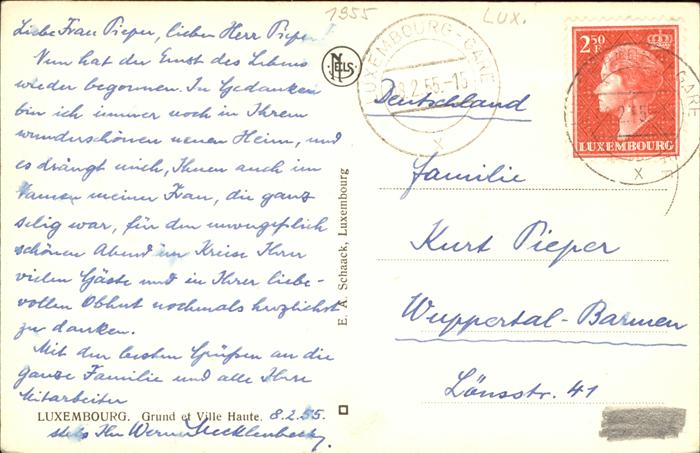 1955
LUX.
Liebe Frau Pieper, lieber Herr Pieper!
Nun hat der Ernst des Lebens
wieder begonnen. In Gedanken
bin ich immer noch in Ihrem
wunderschönen neuen Heim, und
es drängt mich, Ihnen auch im
Namen meiner Frau, die ganz
selig war, für den unvergeßlich
schönen Abend im Kreise Ihrer
vielen Gäste und in Ihrer liebe-
vollen Obhut nochmals herzlichst
zu danken.
Mit den besten Grüßen an die
ganze Familie und alle Ihre
Mitarbeiter
LUXEMBOURG. Grund et Ville Haute. 8.2.55.
stets Ihr Werner Mecklenbeck
NELS
E. A. Schaack, Luxembourg
LUXEMBOURG-GARE
8.2.55.-15
X
2.50
F
LUXEMBOURG
GARE
2.55
X
Deutschland
Familie
Kurt Pieper
Wuppertal-Barmen
Lönsstr. 41